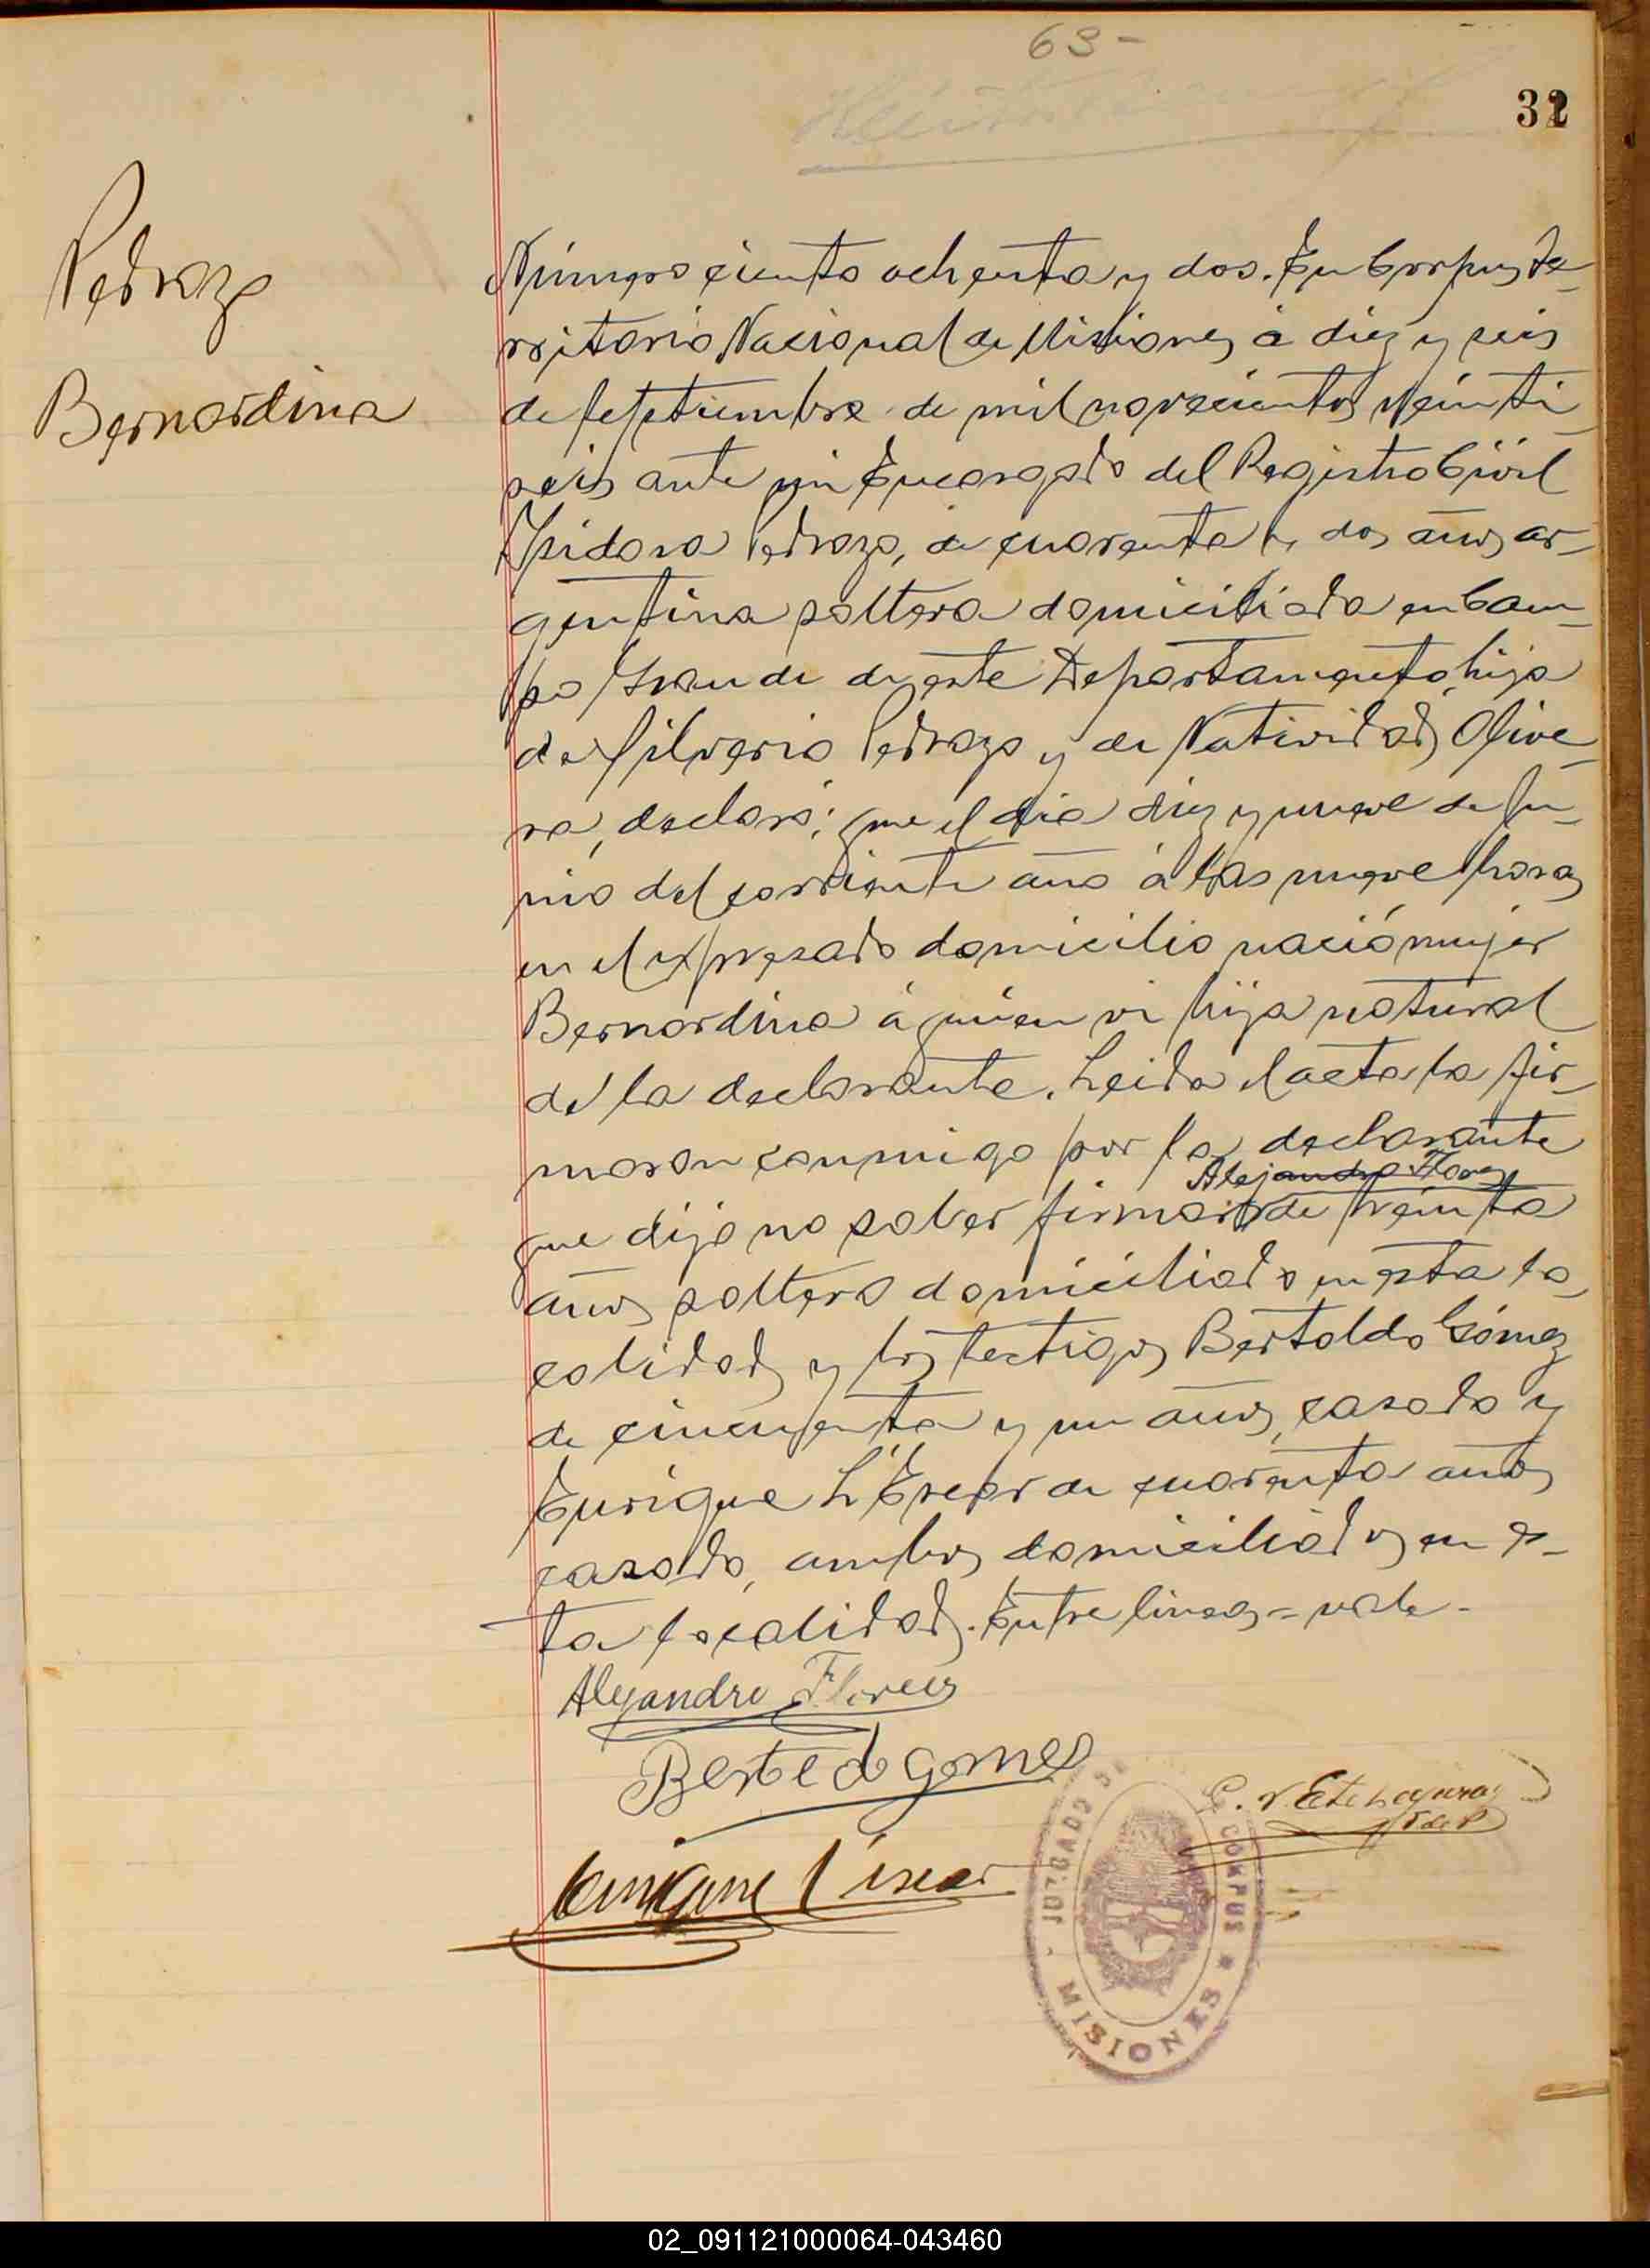 63-
32
Pedrozo
Bernardina
Número ciento ochenta y dos. En Corpus, Te-
rritorio Nacional de Misiones, á diez y seis
de Setiembre de mil novecientos veinti
seis ante mi Encargado del Registro Civil
Isidora Pedrozo, de cuarenta y dos años, ar-
gentina soltera domiciliada en Cam-
po Grande de este Departamento, hija
de Silverio Pedrozo y de Natividad Olive-
ra, declaró: que el dia diez y nueve de Ju-
nio del corriente año á las nueve horas
en el expresado domicilio nació mujer
Bernardina á quien vi hija natural
de la declarante. Leida el acta la fir-
maron conmigo por la declarante
Alejandro Flores
que dijo no saber firmar de treinta
años soltero domiciliado en esta lo-
calidad y los testigos Bertoldo Gómez
de cincuenta y un años, casado y
Enrique L'Escar de cuarenta años
casado, ambos domiciliados en es-
ta localidad. Entre lineas = vale -
Alejandro Flores
Bertoldo Gomes
Enrique
Etchegaray
J de P
JUZGADO DE CORPUS
MISIONES
02_091121000064-043460